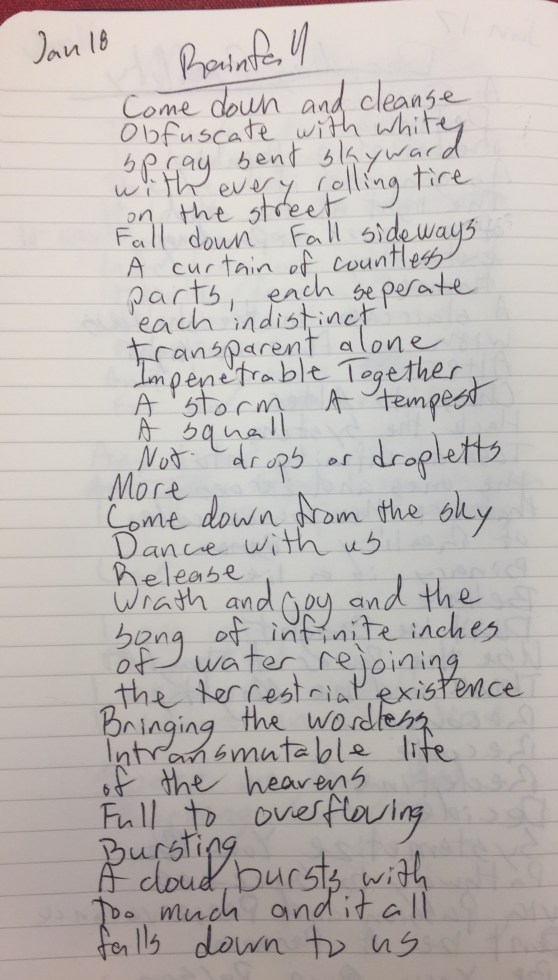 Jan 18
Rainfall
Come down and cleanse
Obfuscate with white
spray sent skyward
with every rolling tire
on the street
Fall down Fall sideways
A curtain of countless
parts, each seperate
each indistinct
transparent alone
Impenetrable Together
A storm A tempest
A squall
Not drops or dropletts
More
Come down from the sky
Dance with us
Release
Wrath and joy and the
song of infinite inches
of water rejoining
the terrestrial existence
Bringing the wordless
Intransmutable life
of the heavens
Full to overflowing
Bursting
A cloud bursts with
Too much and it all
falls down to us